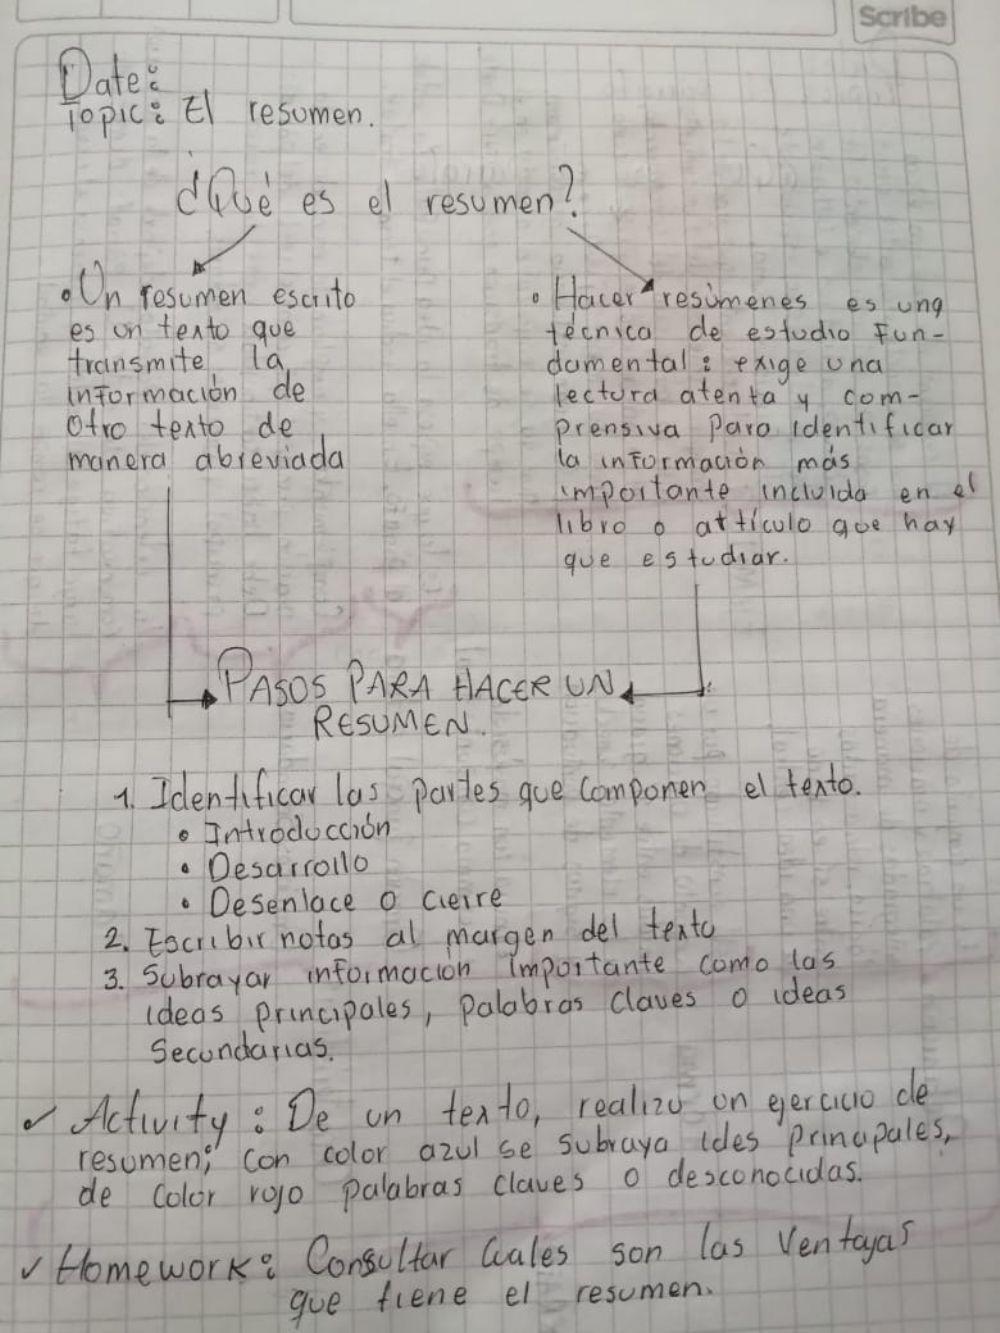 Scribe
Date:
Topic: El resumen.
¿Qué es el resumen?
• Un resumen escrito
es un texto que
transmite la
información de
otro texto de
manera abreviada
• Hacer resúmenes es una
técnica de estudio fun-
damental: exige una
lectura atenta y com-
prensiva para identificar
la información más
importante incluida en el
libro o artículo que hay
que estudiar.
PASOS PARA HACER UN
RESUMEN.
1. Identificar las partes que componen el texto.
• Introducción
• Desarrollo
• Desenlace o cierre
2. Escribir notas al margen del texto
3. Subrayar información importante como las
ideas principales, palabras claves o ideas
secundarias.
✓ Activity: De un texto, realizo un ejercicio de
resumen; con color azul se subraya ides principales,
de color rojo palabras claves o desconocidas.
✓ Homework: Consultar cuales son las ventajas
que tiene el resumen.